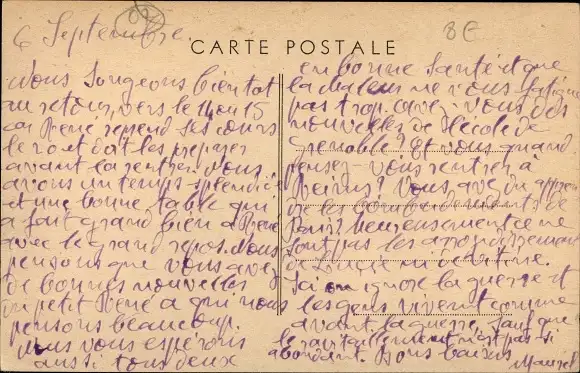 6 Septembre
CARTE POSTALE
Nous songeons bientot
au retour, vers le 14 ou 15
car René reprend ses cours
le et doit les preparer
avant la rentrée. Nous
avons un temps splendide
et une bonne table qui
a fait grand bien à René
avec le grand repos. Nous
pensons que vous avez
de bonnes nouvelles
du petit René a qui nous
pensons beaucoup.
Nous vous espérons
aussi tous deux
en bonne santé et que
la chaleur ne vous fatigue
pas trop. avez-vous des
nouvelles de l'école de
Grenoble? Et vous quand
pensez-vous rentrer à
Reims? Vous avez du appren
dre les bombardements de
Paris? heureusement ce ne
sont pas les arrondissements
de ni de
Ici on ignore la guerre et
les gens vivent comme
avant la guerre, sauf que
le ravitaillement n'est pas si
abondant. Bons baisers